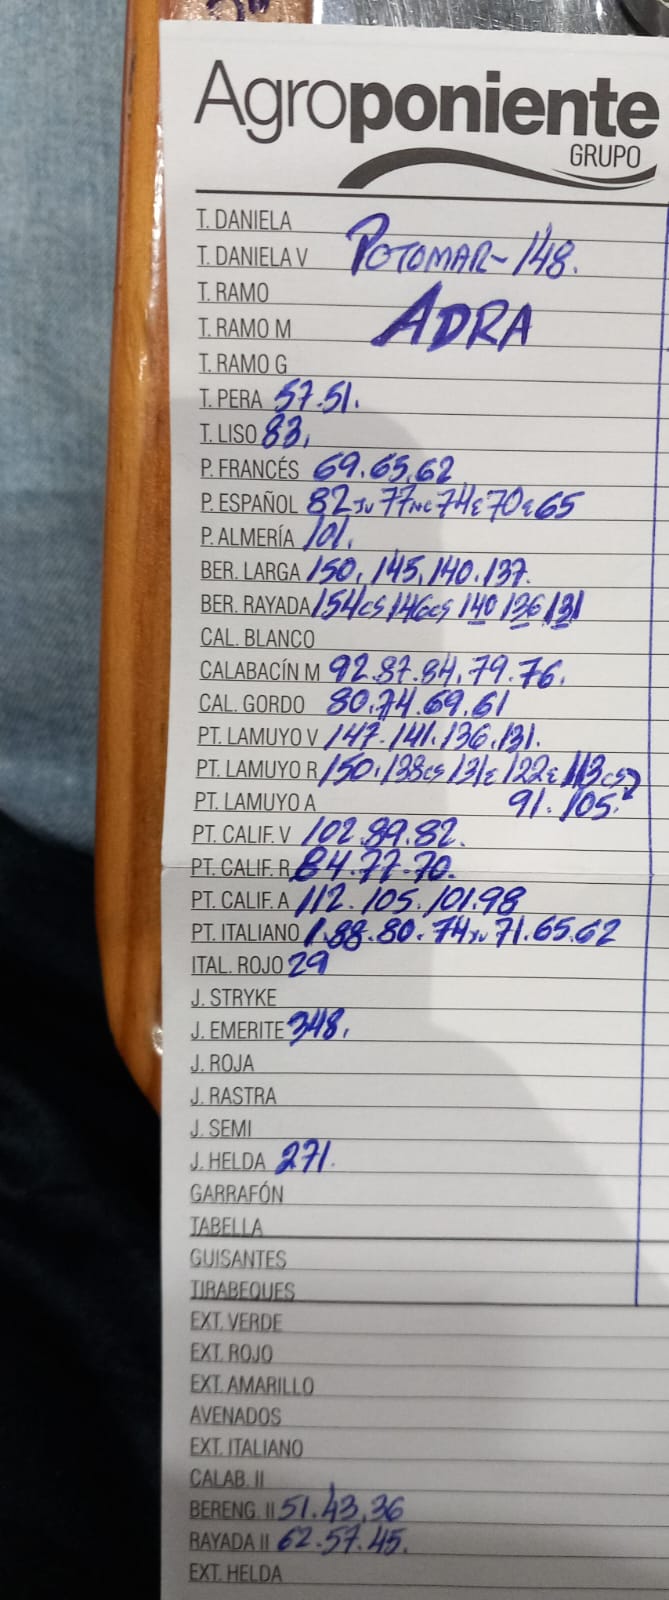 Agroponiente
GRUPO
T. DANELA
T. DANIELA V POTOMAR - 148.
T. RAMO
T. RAMO M ADRA
T. RAMO G
T. PERA 57.51.
T. LISO 83,
P. FRANCÉS 69.65,62
P. ESPAÑOL 82 JU 77 NC 74 E 70 E 65
P. ALMERÍA 101.
BER. LARGA 150, 145, 140. 137.
BER. RAYADA 154 CS 146 CS 140 136 131
CAL. BLANCO
CALABACÍN M 92.87.84,79.76.
CAL. GORDO 80.74.69.61
PT. LAMUYO V 147-141.136.131.
PT. LAMUYO R 150.138 CS 131 E 122 E 113 CS
PT. LAMUYO A 91. 105.
PT. CALIF. V 102.89.82.
PT. CALIF. R 84.77-70.
PT. CALIF. A 112. 105. 101.98
PT. ITALIANO 1.88.80.74 JU 71.65.62
ITAL. ROJO 29
J. STRYKE
J. EMERITE 348.
J. ROJA
J. RASTRA
J. SEMI
J. HELDA 271.
GARRAFÓN
TABELLA
GUISANTES
TIRABEQUES
EXT. VERDE
EXT. ROJO
EXT. AMARILLO
AVENADOS
EXT. ITALIANO
CALAB. II
BERENG. II 51.43,36
RAYADA II 62-57.45.
EXT. HELDA